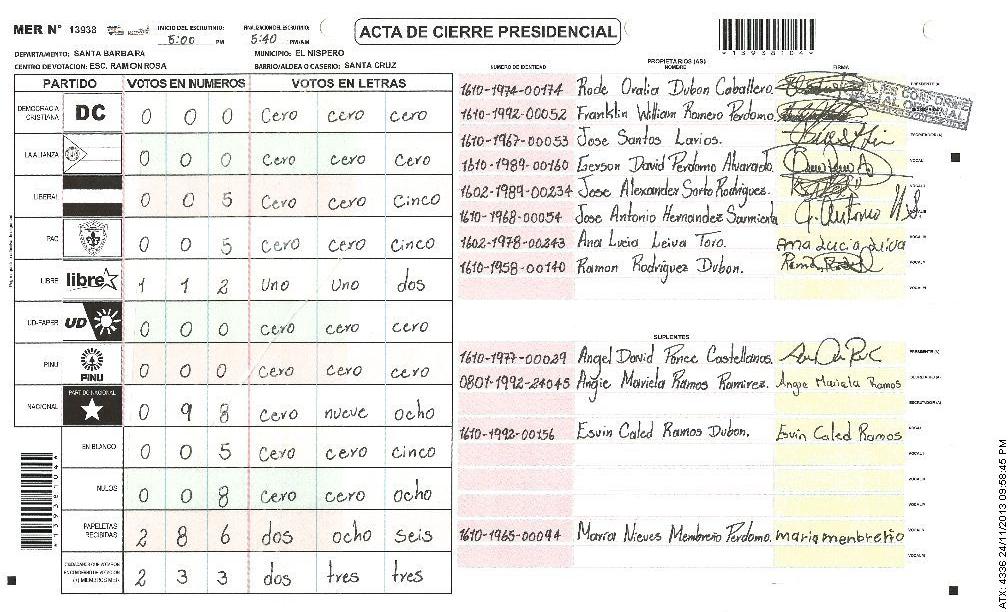 MER N° 13938 INICIO DEL ESCRUTINIO: 5:00 PM FINALIZACION DEL ESCRUTINIO: 5:40 PM/AM
ACTA DE CIERRE PRESIDENCIAL
*13938104*
DEPARTAMENTO: SANTA BARBARA MUNICIPIO: EL NISPERO
CENTRO DE VOTACION: ESC. RAMON ROSA BARRIO/ALDEA O CASERIO: SANTA CRUZ
PARTIDO VOTOS EN NUMEROS VOTOS EN LETRAS
DEMOCRACIA CRISTIANA DC 0 0 0 Cero cero cero
LA ALIANZA 0 0 0 Cero cero Cero
LIBERAL 0 0 5 Cero cero Cinco
PAC 0 0 5 cero cero cinco
LIBRE libre 1 1 2 uno uno dos
UD-FAPER UD 0 0 0 cero cero cero
PINU PINU 0 0 0 cero cero cero
NACIONAL PARTIDO NACIONAL 0 9 8 cero nueve ocho
EN BLANCO 0 0 5 cero cero cinco
NULOS 0 0 8 cero cero ocho
PAPELETAS RECIBIDAS 2 8 6 dos ocho seis
2 3 3 dos tres tres
PROPIETARIOS (AS)
NUMERO DE IDENTIDAD NOMBRE FIRMA
1610-1974-00174 Rode Oralia Dubon Caballero. PRESIDENTE (A)
1610-1992-00052 Franklin William Romero Perdomo.
1610-1967-00053 Jose Santos Larios.
1610-1989-00160 Gerson David Perdomo Alvarado. VOCAL I
1602-1989-00234 Jose Alexander Sorto Rodriguez.
1610-1968-00054 Jose Antonio Hernandez Sarmiento
1602-1978-00243 Ana Lucia Leiva Toro. Ana Lucia Leiva
1610-1958-00140 Ramon Rodriguez Dubon.
SUPLENTES
1610-1977-00029 Angel David Ponce Castellanos. PRESIDENTE (A)
0801-1992-24045 Angie Mariela Ramos Ramirez. Angie Mariela Ramos SECRETARIO (A)
ESCRUTADOR (A)
1610-1992-00156 Esvin Caled Ramos Dubon. Esvin Caled Ramos VOCAL I
1610-1965-00094 Maria Nieves Membreño Perdomo. maria menbreño
*13938104*
ATX: 4336 24/11/2013 09:58:45 PM